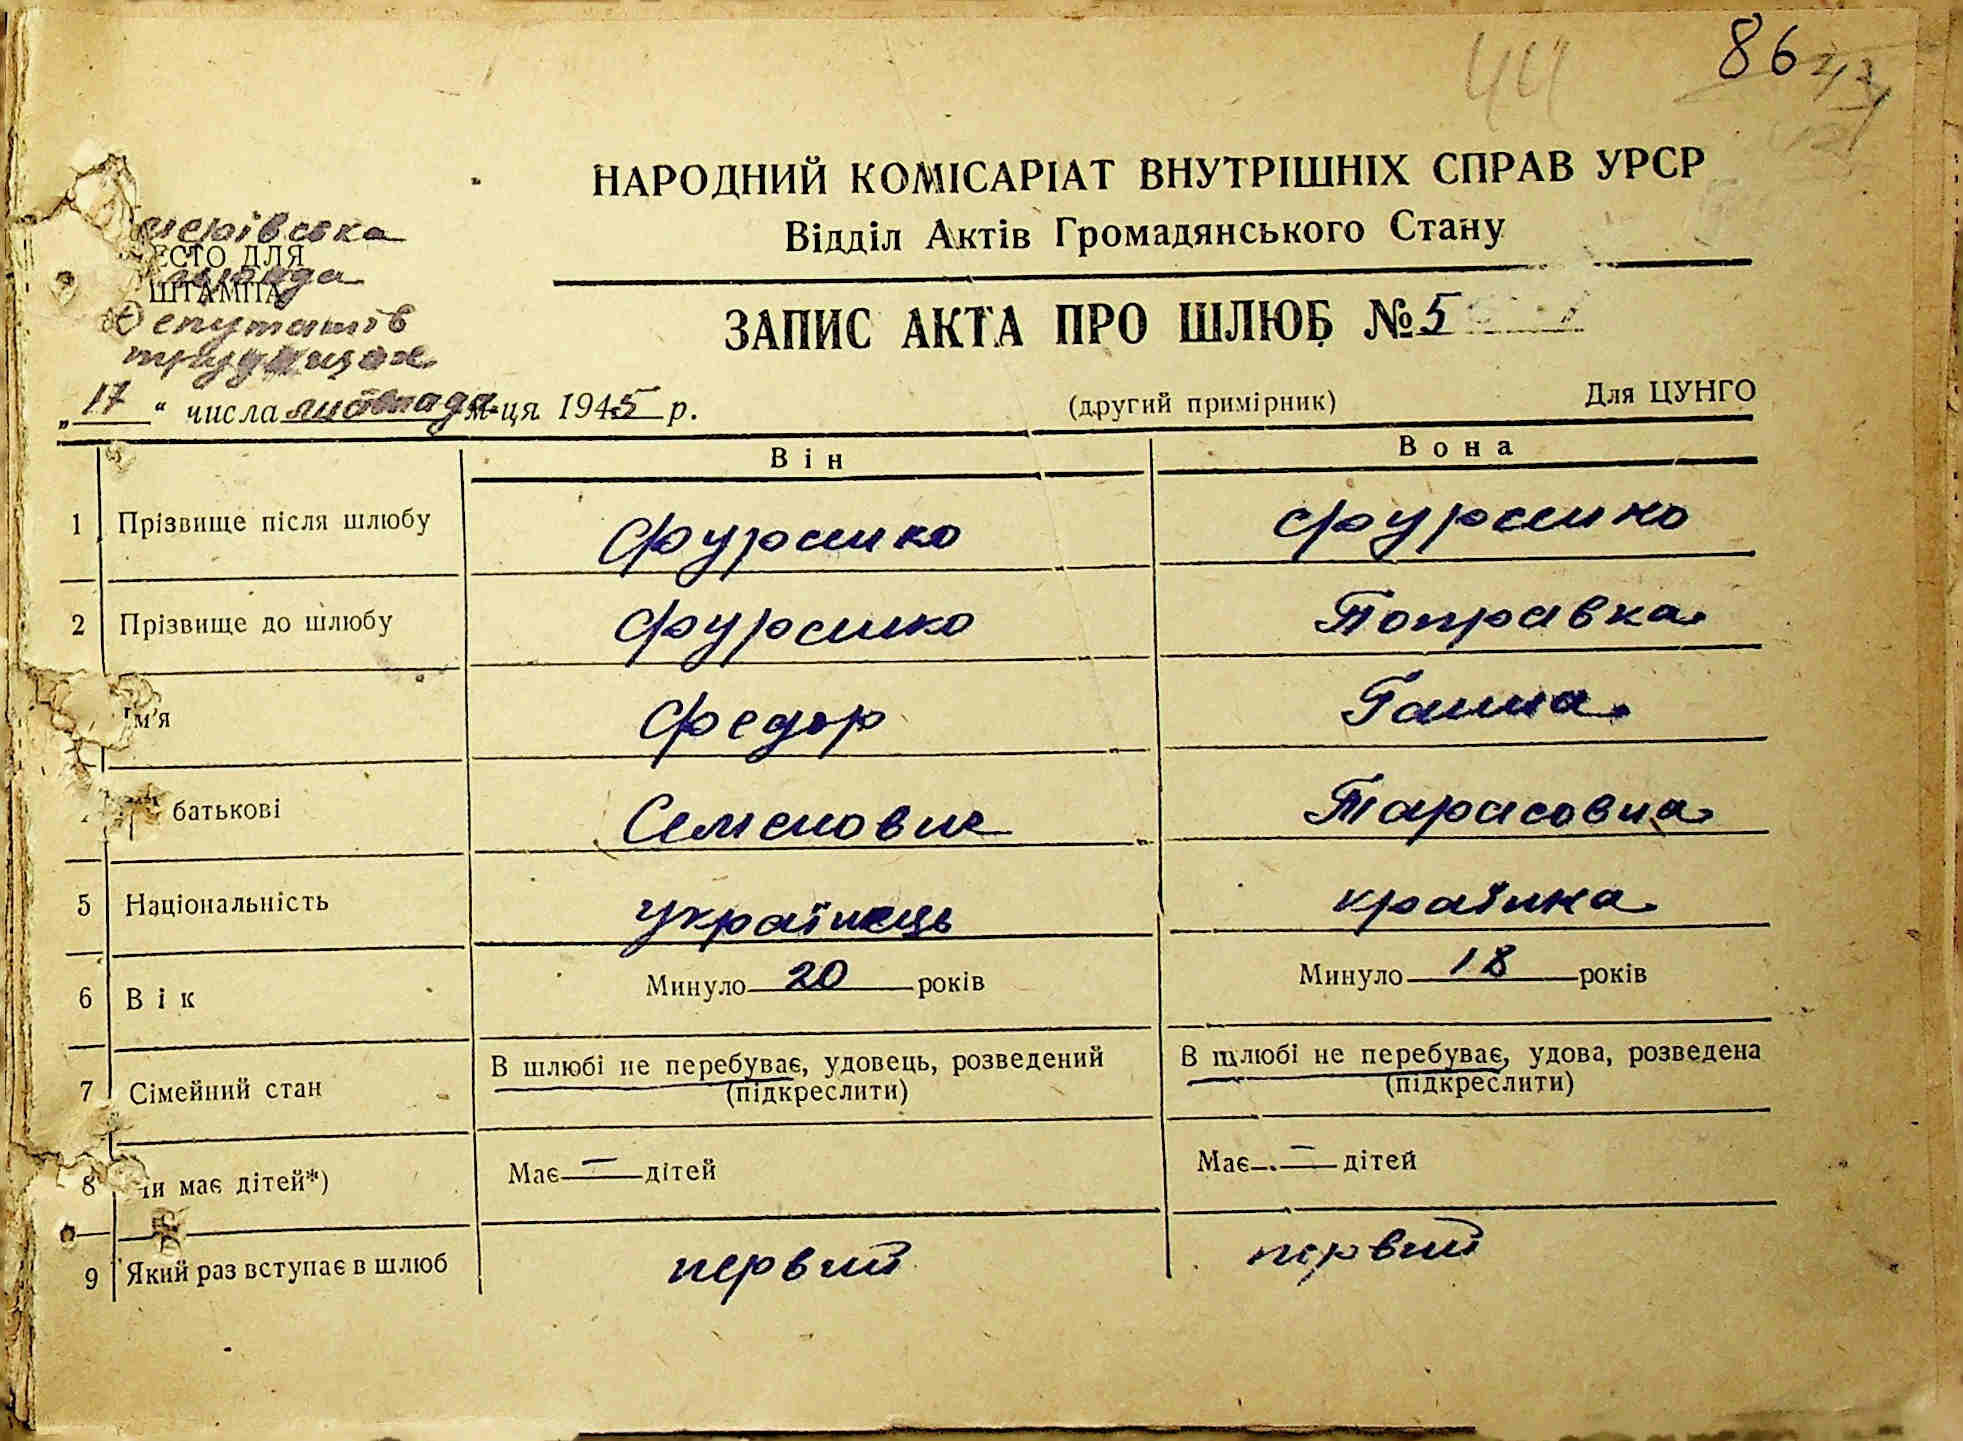 44 86
НАРОДНИЙ КОМІСАРІАТ ВНУТРІШНІХ СПРАВ УРСР
Відділ Актів Громадянського Стану
ЕСТО ДЛЯ
ШТАМПА
Депутатів
трудящих
ЗАПИС АКТА ПРО ШЛЮБ № 5
„17“ числа листопада м-ця 1945 р.
(другий примірник)
Для ЦУНГО
Він Вона
1 Прізвище після шлюбу Фурсико Фурсико
2 Прізвище до шлюбу Фурсико Поправка
Ім'я Федор Ганна
батькові Семенович Тарасовна
5 Національність українець країнка
6 Вік Минуло 20 років Минуло 18 років
7 Сімейний стан В шлюбі не перебуває, удовець, розведений В шлюбі не перебуває, удова, розведена
(підкреслити) (підкреслити)
8 чи має дітей*) Має — дітей Має — дітей
9 Який раз вступає в шлюб первий первий